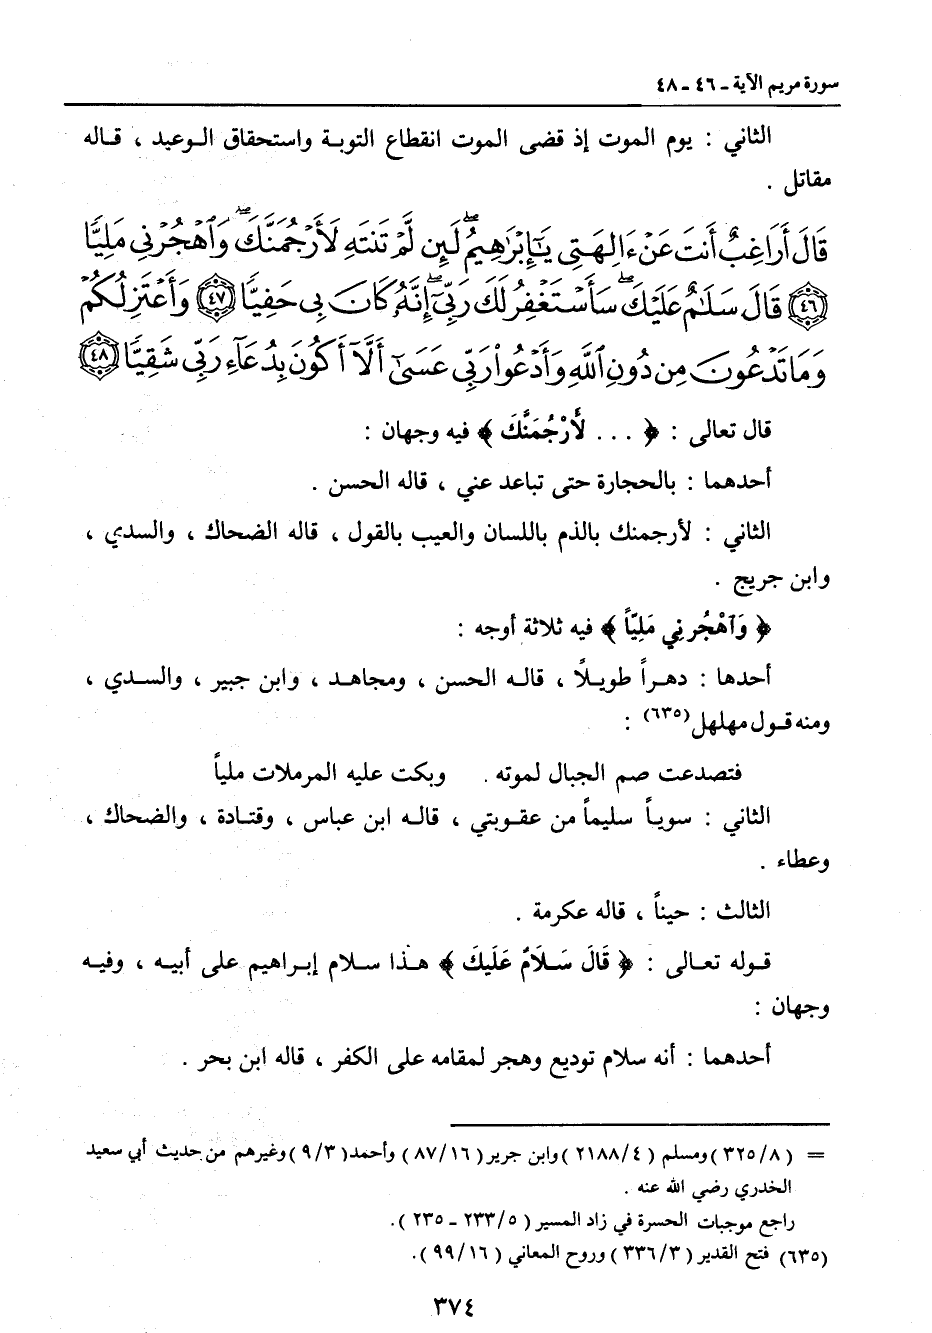 سورة مريم الآية ـ ٤٦ ـ ٤٨
الثاني : يوم الموت إذ قضى الموت انقطاع التوبة واستحقاق الـوعيد ، قـاله
مقاتل .
قَالَ أَرَاغِبٌ أَنتَ عَنْ ءَالِهَتِى يَٰٓإِبْرَٰهِيمُۖ لَئِن لَّمْ تَنتَهِ لَأَرْجُمَنَّكَۖ وَٱهْجُرْنِى مَلِيًّا
﴿٤٦﴾ قَالَ سَلَٰمٌ عَلَيْكَۖ سَأَسْتَغْفِرُ لَكَ رَبِّىٓۖ إِنَّهُۥ كَانَ بِى حَفِيًّا ﴿٤٧﴾ وَأَعْتَزِلُكُمْ
وَمَا تَدْعُونَ مِن دُونِ ٱللَّهِ وَأَدْعُوا۟ رَبِّى عَسَىٰٓ أَلَّآ أَكُونَ بِدُعَآءِ رَبِّى شَقِيًّا ﴿٤٨﴾
قال تعالى : ﴿ . . . لَأَرْجُمَنَّكَ ﴾ فيه وجهان :
أحدهما : بالحجارة حتى تباعد عني ، قاله الحسن .
الثاني : لأرجمنك بالذم باللسان والعيب بالقول ، قاله الضحاك ، والسدي ،
وابن جريج .
﴿ وَٱهْجُرنِي مَلِيّاً ﴾ فيه ثلاثة أوجه :
أحدها : دهـراً طويـلاً ، قالـه الحسن ، ومجاهـد ، وابن جبير ، والسـدي ،
ومنه قـول مهلهل(٦٣٥) :
فتصدعت صم الجبال لموته . وبكت عليه المرملات ملياً
الثاني : سويـاً سليماً من عقـوبتي ، قالـه ابن عباس ، وقتـادة ، والضحاك ،
وعطاء .
الثالث : حيناً ، قاله عكرمة .
قـوله تعـالى : ﴿ قَالَ سَـلَامٌ عَلَيكَ ﴾ هـذا سـلام إبـراهيم على أبيـه ، وفيـه
وجهان :
أحدهما : أنه سلام توديع وهجر لمقامه على الكفر ، قاله ابن بحر .
= ( ٣٢٥/٨ )ومسلم ( ٢١٨٨/٤ )وابن جرير( ٨٧/١٦ ) وأحمد( ٩/٣ )وغيرهم من حديث أبي سعيد
الخدري رضي الله عنه .
راجع موجبات الحسرة في زاد المسير ( ٢٣٣/٥ ـ ٢٣٥ ).
(٦٣٥) فتح القدير ( ٣٣٦/٣ ) وروح المعاني ( ٩٩/١٦ ).
٣٧٤